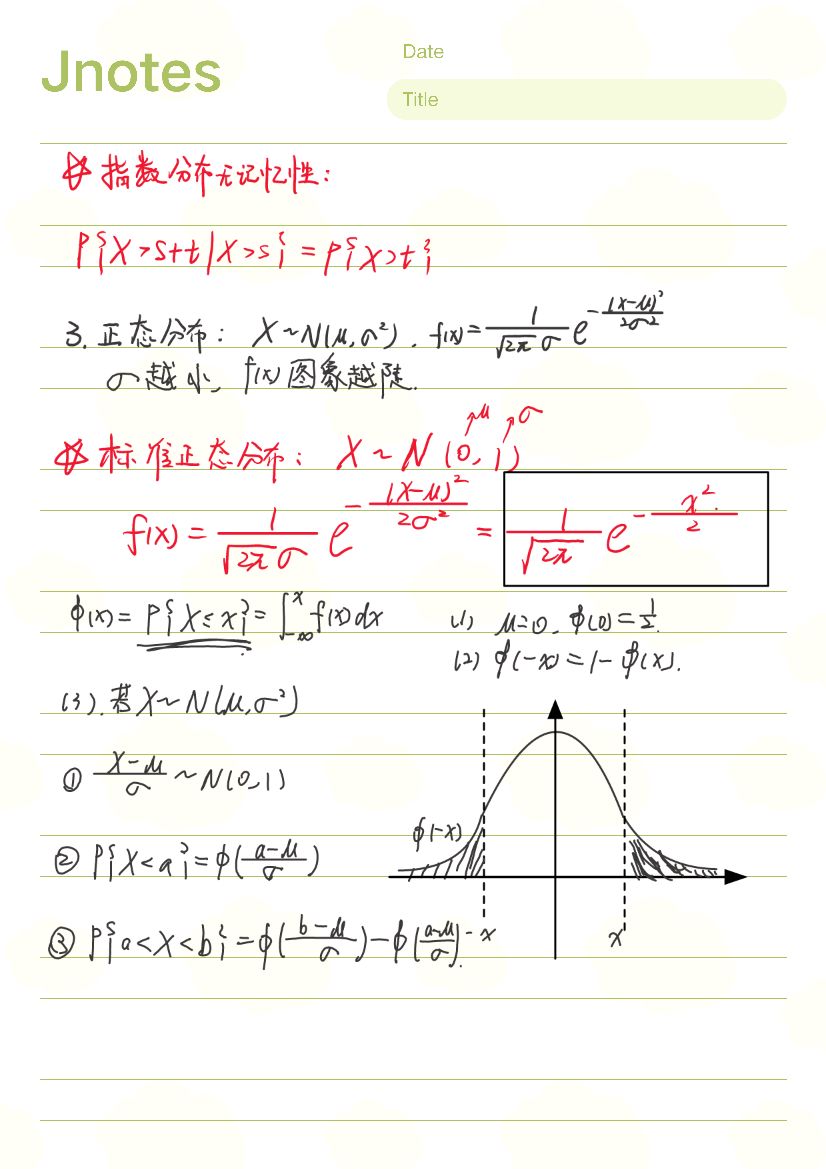 Jnotes
Date
Title
☆ 指数分布无记忆性：
P{X>s+t|X>s}=P{X>t}
3. 正态分布： X~N(μ,σ²). f(x)=\frac{1}{\sqrt{2π}σ}e^{-\frac{(x-μ)²}{2σ²}}
σ越小, f(x)图象越陡.
☆ 标准正态分布： X~N(0,1) ↗μ ↗σ
f(x)=\frac{1}{\sqrt{2π}σ}e^{-\frac{(x-μ)²}{2σ²}}=\frac{1}{\sqrt{2π}}e^{-\frac{x²}{2}}
ϕ(x)=P{X≤x}=∫_{-∞}^{x}f(x)dx
(1) μ=0, ϕ(0)=\frac{1}{2}.
(2) ϕ(-x)=1-ϕ(x).
(3).若X~N(μ,σ²)
① \frac{X-μ}{σ}~N(0,1)
② P{X<a}=ϕ(\frac{a-μ}{σ})
③ P{a<X<b}=ϕ(\frac{b-μ}{σ})-ϕ(\frac{a-μ}{σ}).
ϕ(-x)
-x
x